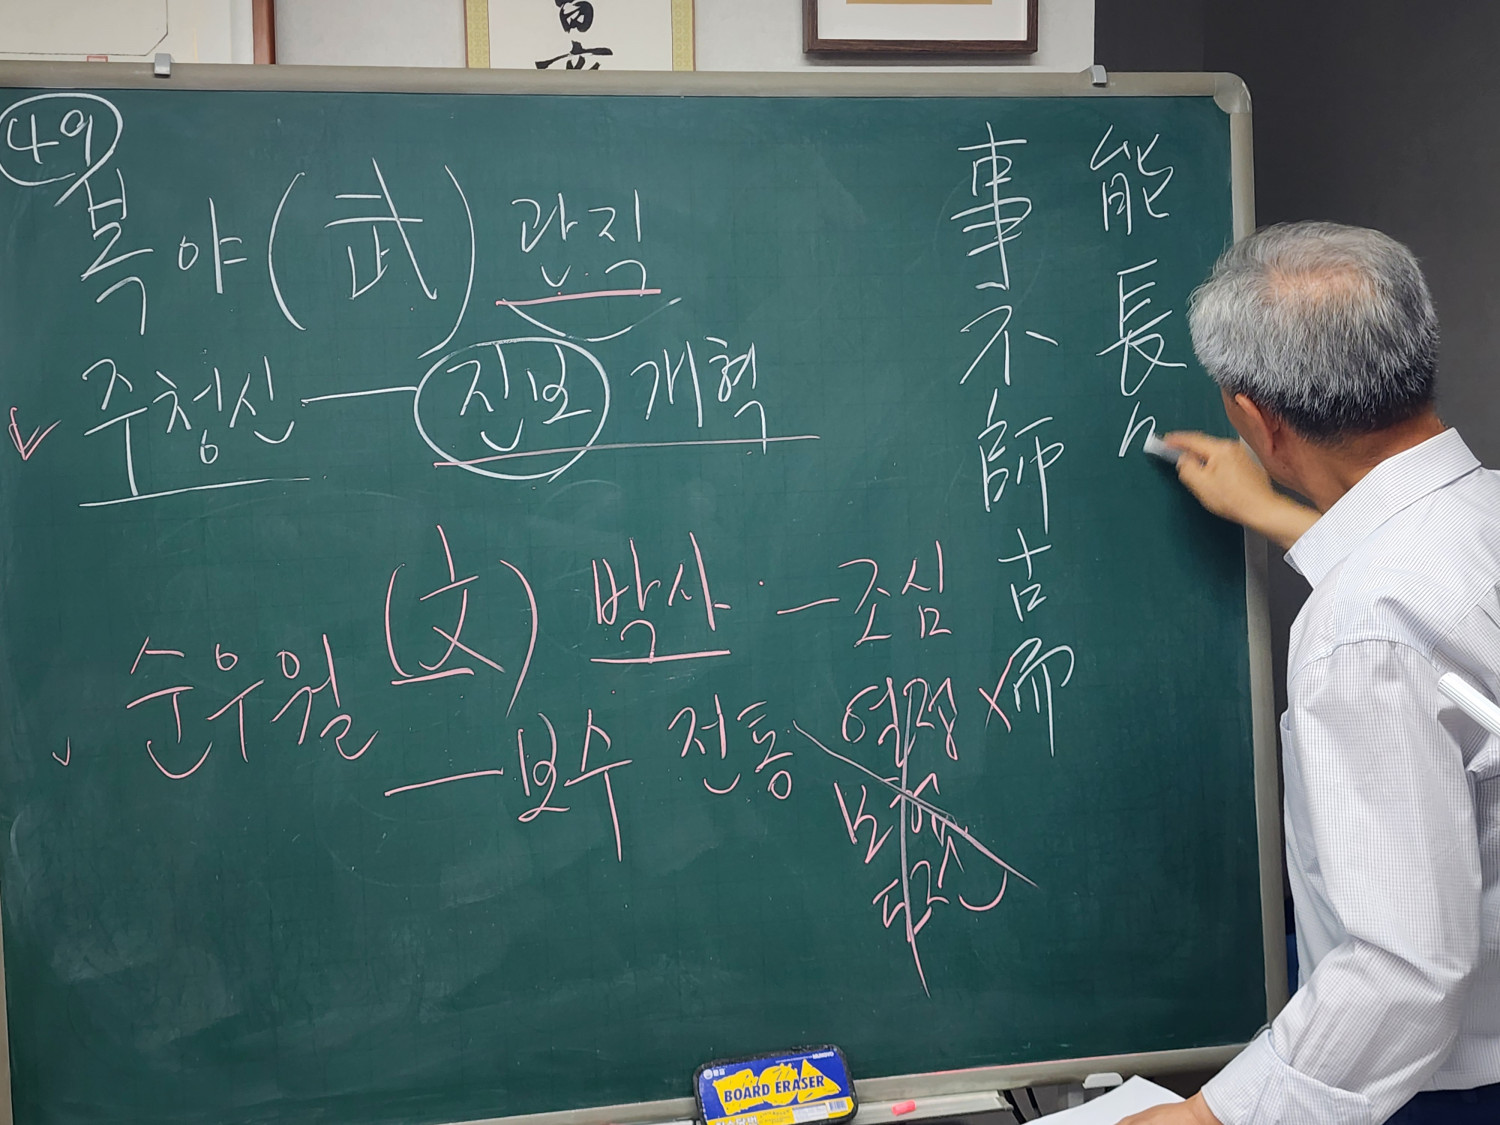 49
복야(武) 관직
주청신 — 진보 개혁
순우월 (文) 박사 — 조심
— 보수 전통
事不師古而
能長
BOARD ERASER